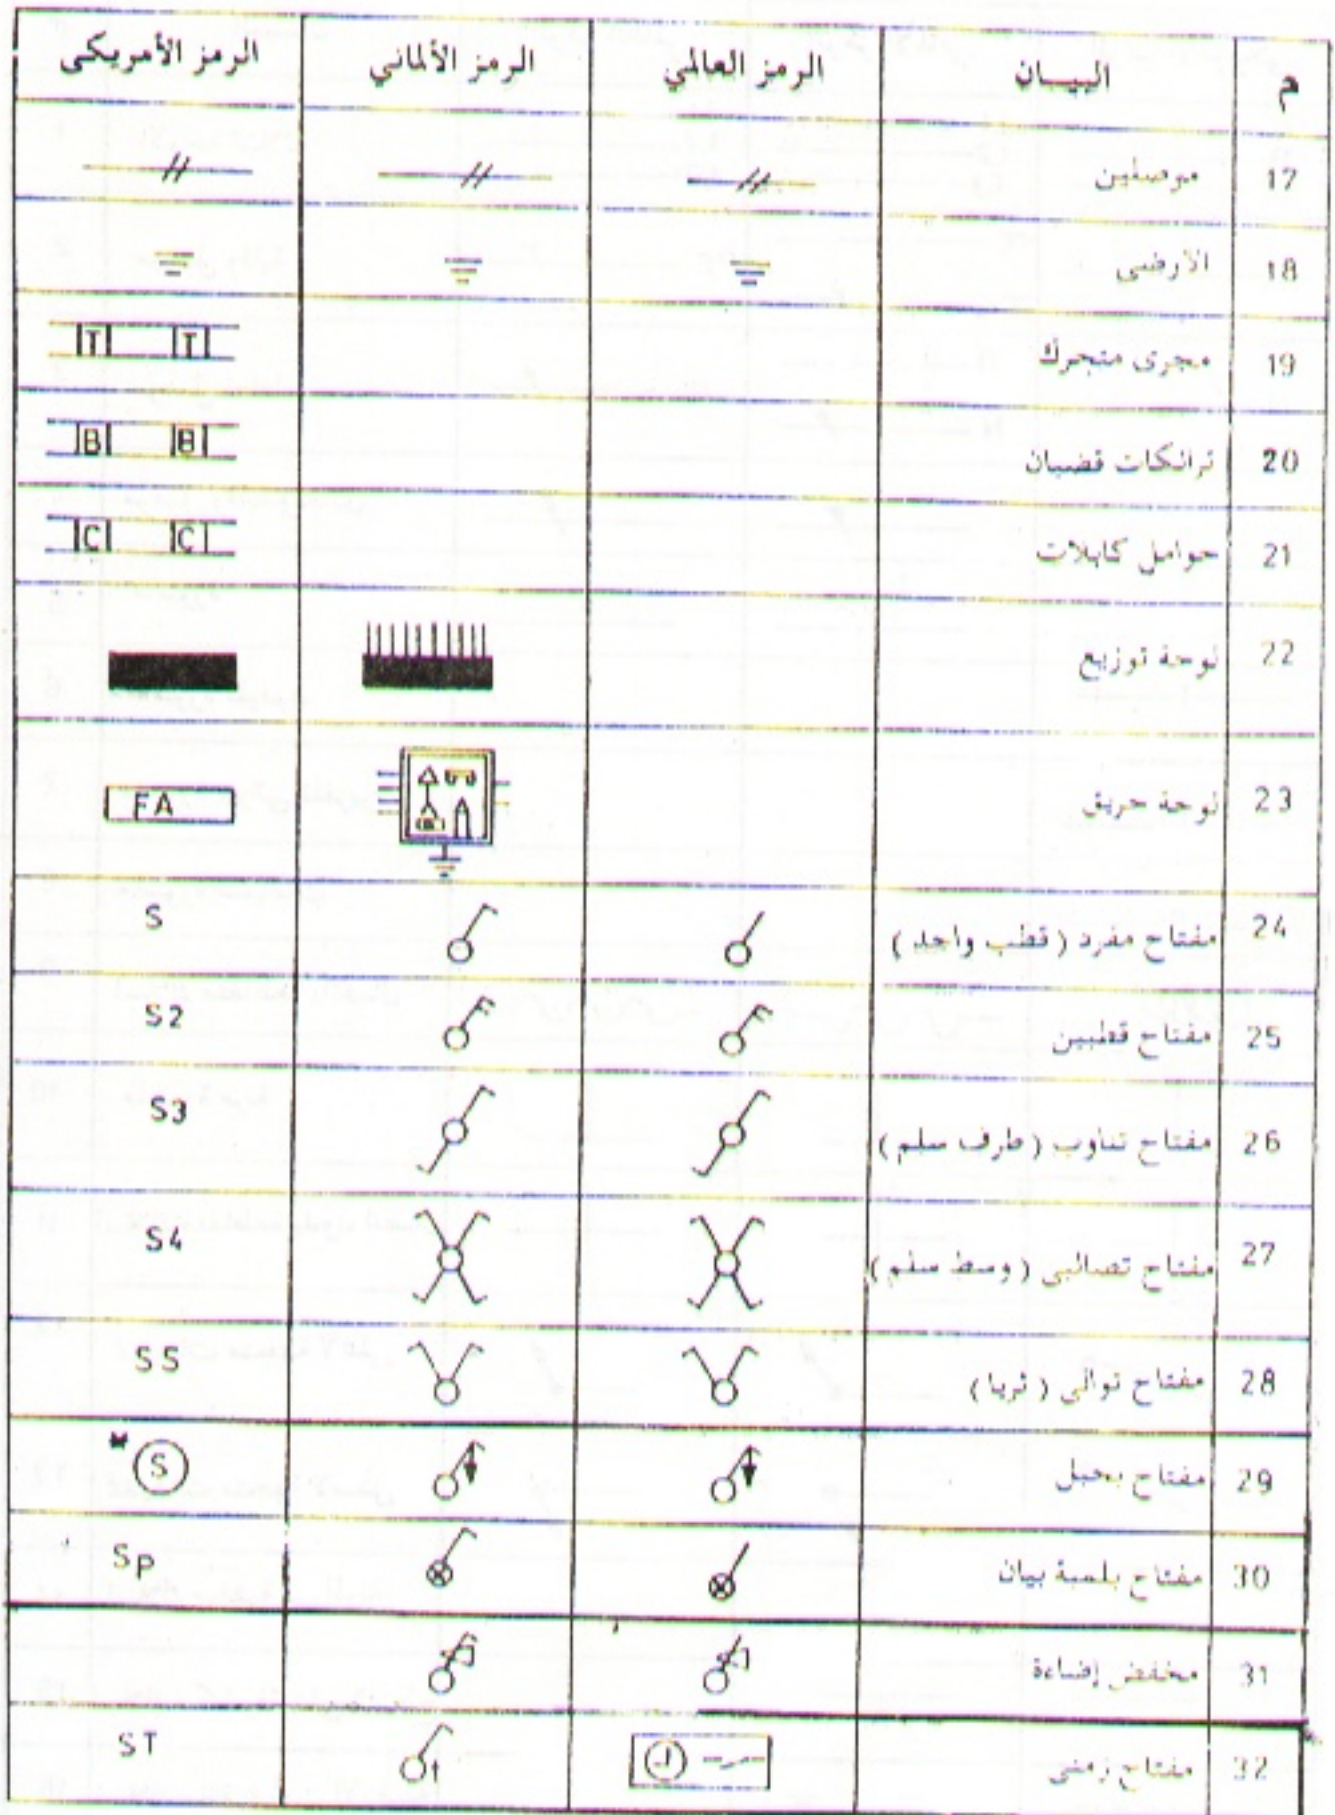 م البيان الرمز العالمي الرمز الألماني الرمز الأمريكى
17 موصلين
18 الارضى
19 مجرى متحرك T T
20 ترانكات قضبان B B
21 حوامل كابلات C C
22 لوحة توزيع
23 لوحة حريق FA
24 مفتاح مفرد ( قطب واحد ) S
25 مفتاح قطبين S2
26 مفتاح تناوب ( طرف سلم ) S3
27 مفتاح تصالبى ( وسط سلم ) S4
28 مفتاح توالى ( ثريا ) S5
29 مفتاح بحبل S
30 مفتاح بلمبة بيان Sp
31 مخفض إضاءة
32 مفتاح زمنى ST